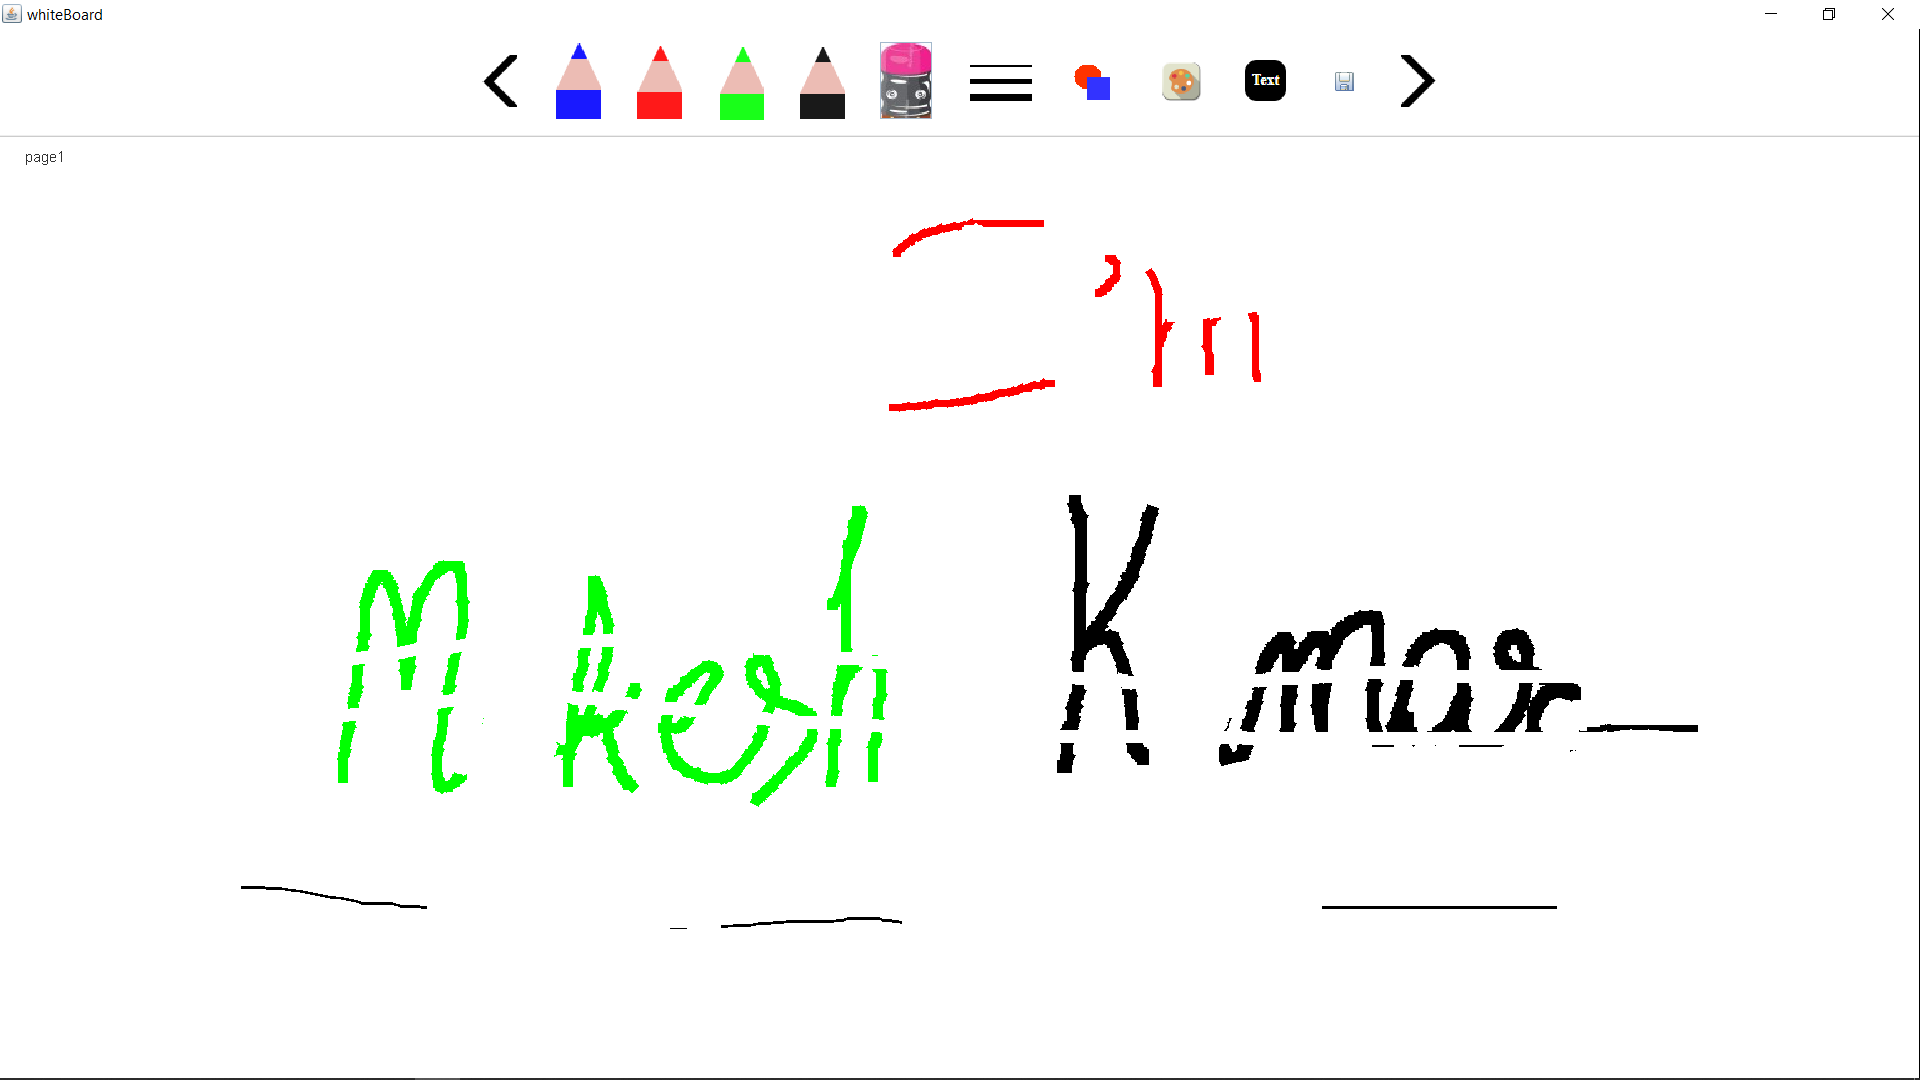 whiteBoard
Text
page1
'm
M kesh K mar